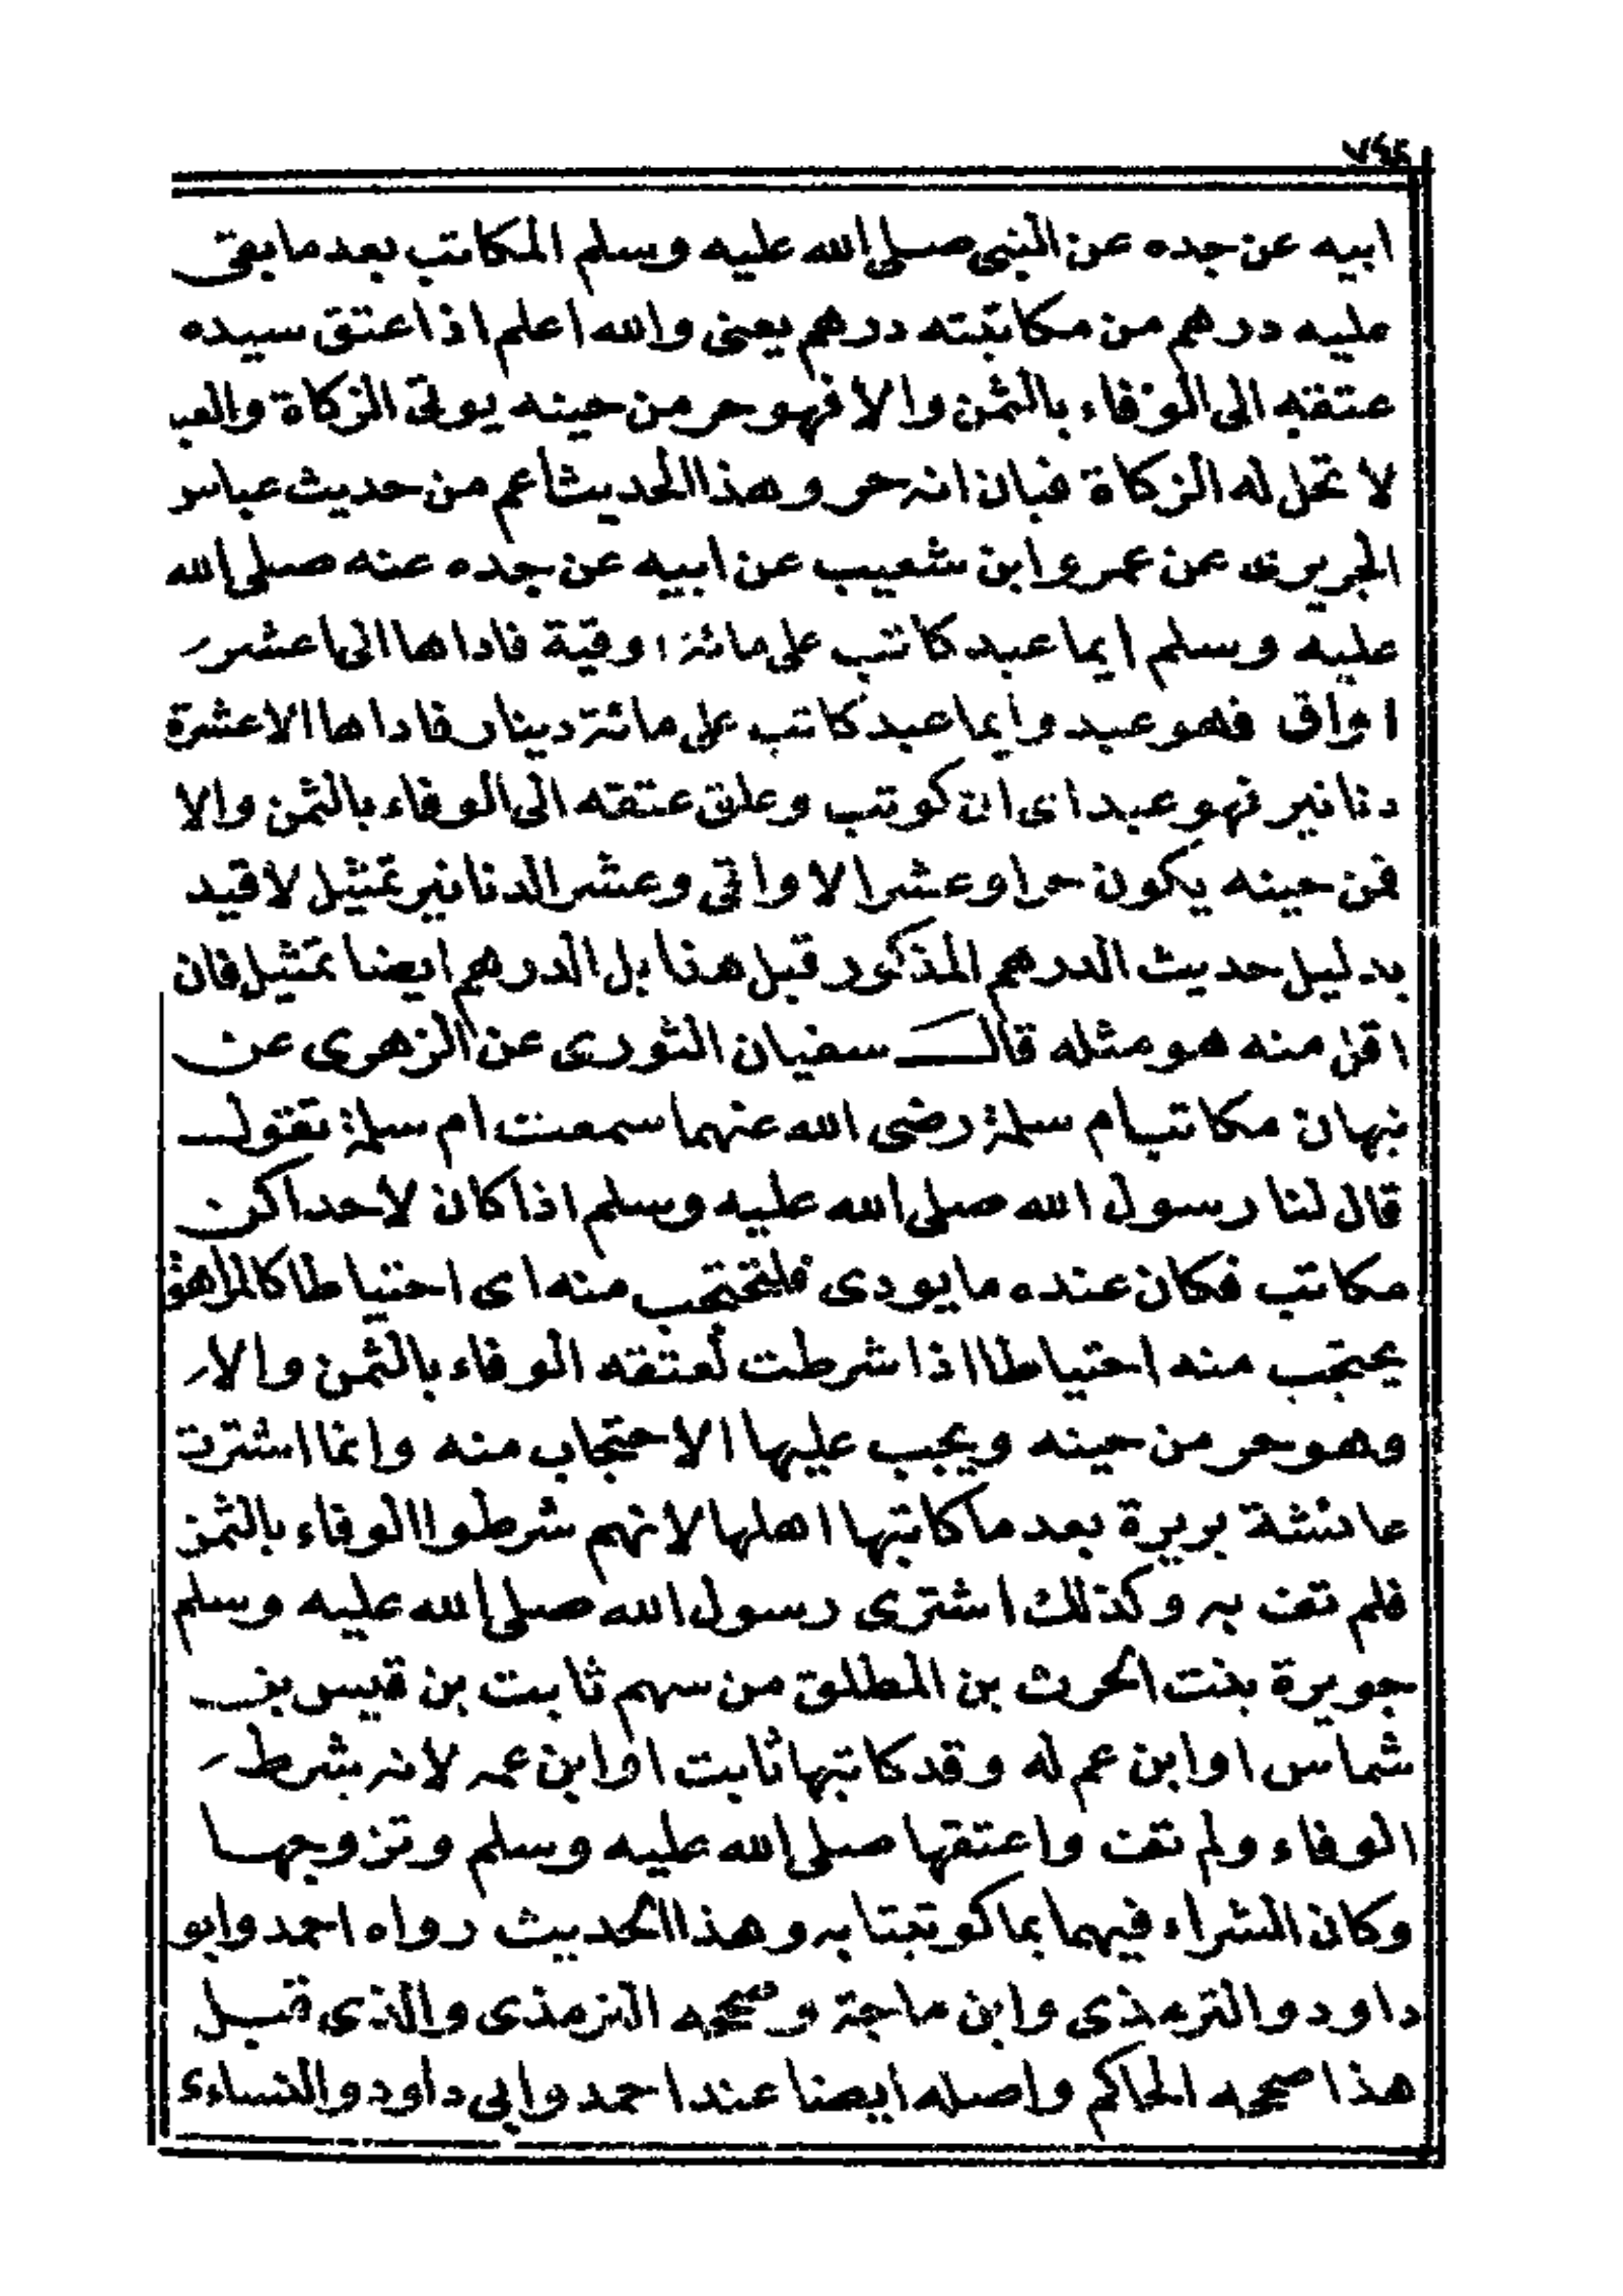 ابيه عن جده عن النبى صلى الله عليه وسلم المكاتب بعد ما بقى
عليه درهم من مكاتبته درهم يعنى والله اعلم اذا عتق سيده
عتقه الى الوفاء بالثمن والا فهو حر من حينه يوتى الزكاة والعبد
لا تحل له الزكاة فبان انه حر وهذا الحديث اعم من حديث عباس
الجريرى عن عمرو ابن شعيب عن ابيه عن جده عنه صلى الله
عليه وسلم ايما عبد كاتب على مائة اوقية فاداها الى اعشر
اواق فهو عبد وايما عبد كاتب على مائة دينار فاداها الا عشرة
دنانير فهو عبد اى ان كوتب وعلق عتقه الى الوفاء بالثمن والا
فمن حينه يكون حرا وعشر الاواقى وعشر الدنانير تمثيل لا قيد
بدليل حديث الدرهم المذكور قبل هذا بل الدرهم ايضا تمثيل فان
اقل منه هو مثله قال سفيان الثورى عن الزهرى عن
نبهان مكاتب ام سلمة رضى الله عنهما سمعت ام سلمة تقول
قال لنا رسول الله صلى الله عليه وسلم اذا كان لاحداكن
مكاتب فكان عنده ما يودى فلتحتجب منه اى احتياطا كالمراهق
يحتجب منه احتياطا اذا شرطت لعتقه الوفاء بالثمن والا
وهو حر من حينه ويجب عليها الاحتجاب منه وانما اشترت
عائشة بريرة بعد ما كاتبها اهلها لانهم شرطوا الوفاء بالثمن
فلم تف به وكذلك اشترى رسول الله صلى الله عليه وسلم
جويرة بنت الحرث بن المطلق من سهم ثابت بن قيس بن
شماس او ابن عم له وقد كاتبها ثابت او ابن عمه لانه بشرط
الوفاء ولم تف واعتقها صلى الله عليه وسلم وتزوجها
وكان الشراء فيهما بما كوتبتا به وهذا الحديث رواه احمد وابو
داود والترمذى وابن ماجة وصححه الترمذى والذى قبل
هذا صححه الحاكم واصله ايضا عند احمد وابى داود والنساءى